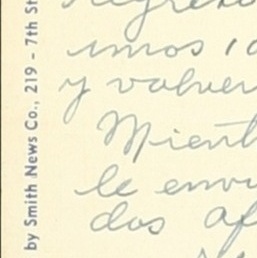 by Smith News Co., 219 - 7th St
regres
unos 10
y volver
Mient
le envi
dos af